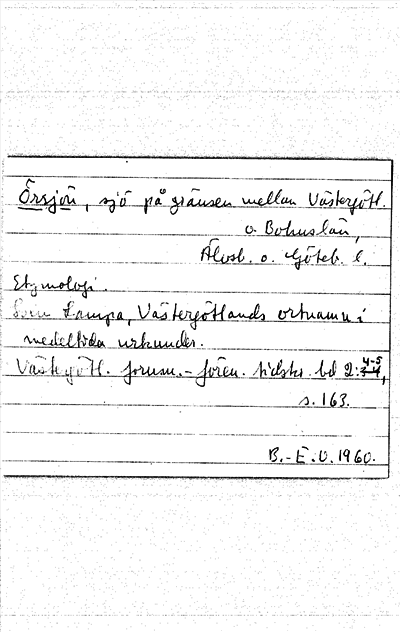 Örsjön, sjö på gränsen mellan Västergötl.
o. Bohuslän,
Älvsb. o. Göteb. l.
Etymologi.
Sven Lampa, Västergötlands ortnamn i
medeltida urkunder.
Västergötl. fornm.-fören. tidskr. bd 2:4-5,
s. 163.
B.-E. O. 1960.